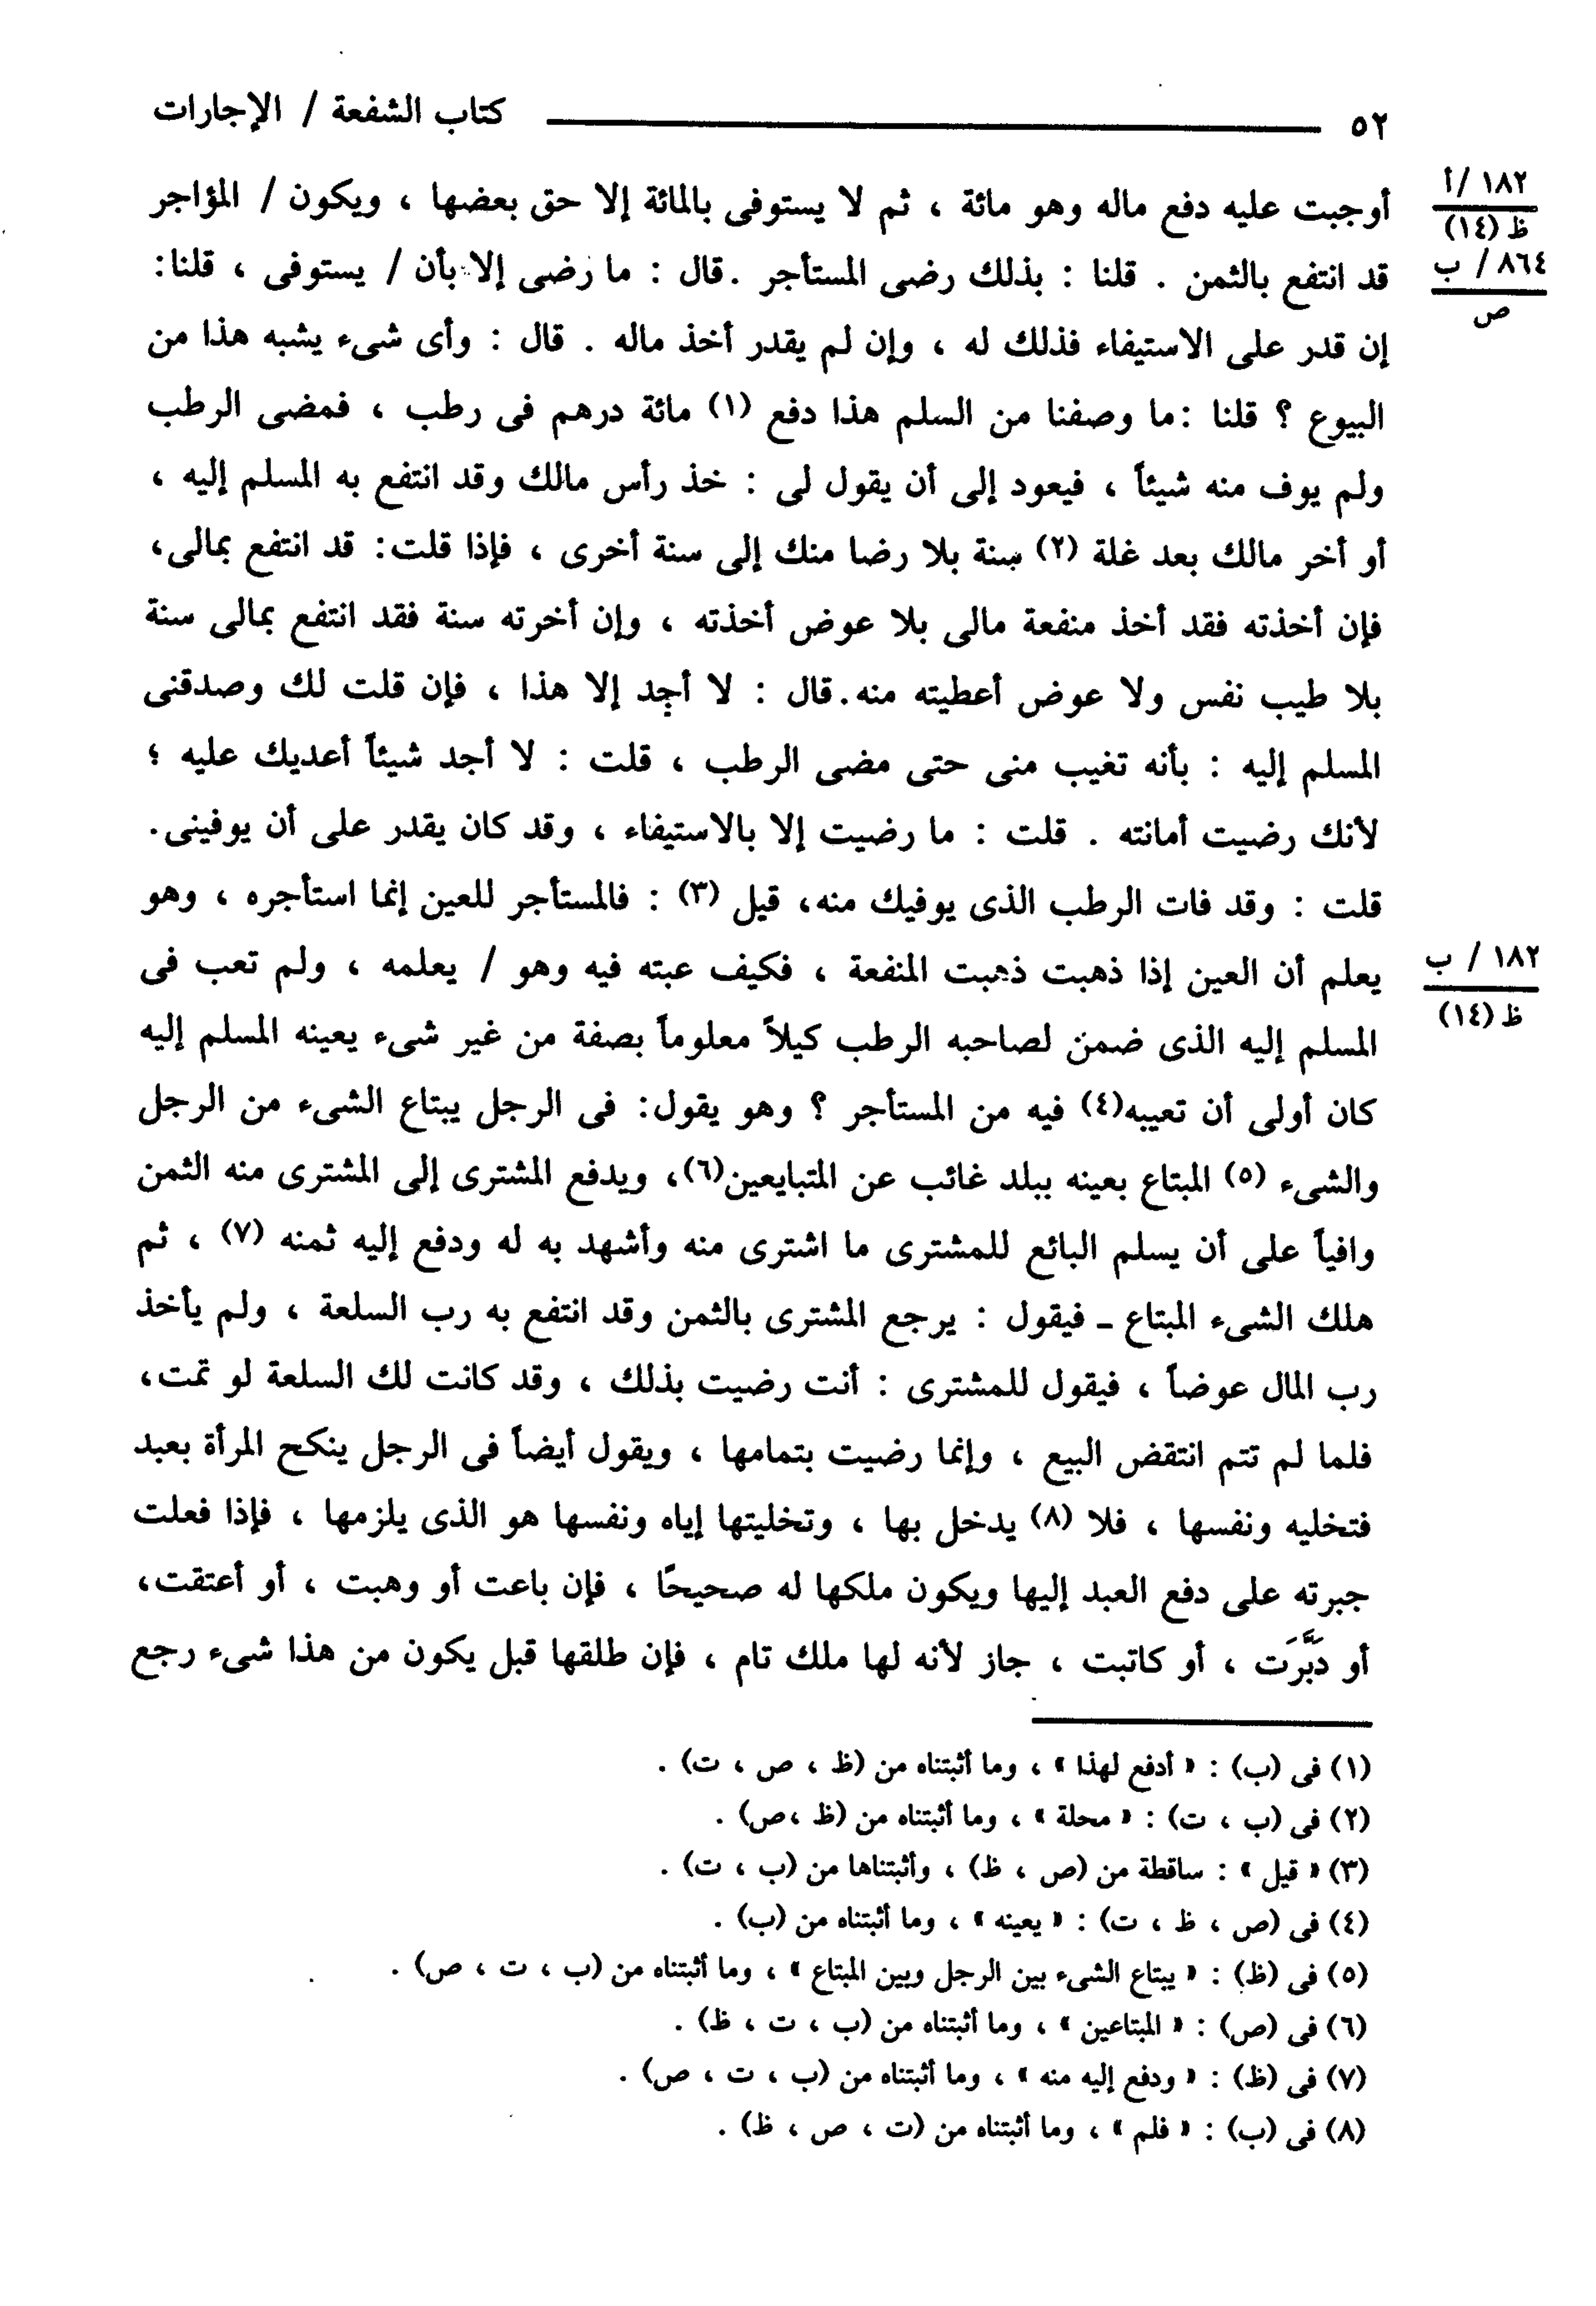 ٥٢ كتاب الشفعة / الإجارات
١٨٢ /أ
ظ (١٤)
٨٦٤ / ب
ص
أوجبت عليه دفع ماله وهو مائة ، ثم لا يستوفى بالمائة إلا حق بعضها ، ويكون / المؤاجر
قد انتفع بالثمن . قلنا : بذلك رضى المستأجر .قال : ما رضى إلا بأن / يستوفى ، قلنا:
إن قدر على الاستيفاء فذلك له ، وإن لم يقدر أخذ ماله . قال : وأى شىء يشبه هذا من
البيوع ؟ قلنا :ما وصفنا من السلم هذا دفع (١) مائة درهم فى رطب ، فمضى الرطب
ولم يوف منه شيئاً ، فيعود إلى أن يقول لى : خذ رأس مالك وقد انتفع به المسلم إليه ،
أو أخر مالك بعد غلة (٢) سنة بلا رضا منك إلى سنة أخرى ، فإذا قلت: قد انتفع بمالى،
فإن أخذته فقد أخذ منفعة مالى بلا عوض أخذته ، وإن أخرته سنة فقد انتفع بمالى سنة
بلا طيب نفس ولا عوض أعطيته منه.قال : لا أجد إلا هذا ، فإن قلت لك وصدقنى
المسلم إليه : بأنه تغيب منى حتى مضى الرطب ، قلت : لا أجد شيئاً أعديك عليه ؛
لأنك رضيت أمانته . قلت : ما رضيت إلا بالاستيفاء ، وقد كان يقدر على أن يوفينى.
قلت : وقد فات الرطب الذى يوفيك منه، قيل (٣) : فالمستأجر للعين إنما استأجره ، وهو
يعلم أن العين إذا ذهبت ذهبت المنفعة ، فكيف عبته فيه وهو / يعلمه ، ولم تعب فى
١٨٢ / ب
ظ (١٤)
المسلم إليه الذى ضمن لصاحبه الرطب كيلاً معلوماً بصفة من غير شىء يعينه المسلم إليه
كان أولى أن تعيبه(٤) فيه من المستأجر ؟ وهو يقول: فى الرجل يبتاع الشىء من الرجل
والشىء (٥) المبتاع بعينه ببلد غائب عن المتبايعين(٦)، ويدفع المشترى إلى المشترى منه الثمن
وافياً على أن يسلم البائع للمشترى ما اشترى منه وأشهد به له ودفع إليه ثمنه (٧) ، ثم
هلك الشىء المبتاع ـ فيقول : يرجع المشترى بالثمن وقد انتفع به رب السلعة ، ولم يأخذ
رب المال عوضاً ، فيقول للمشترى : أنت رضيت بذلك ، وقد كانت لك السلعة لو تمت،
فلما لم تتم انتقض البيع ، وإنما رضيت بتمامها ، ويقول أيضاً فى الرجل ينكح المرأة بعبد
فتخليه ونفسها ، فلا (٨) يدخل بها ، وتخليتها إياه ونفسها هو الذى يلزمها ، فإذا فعلت
جبرته على دفع العبد إليها ويكون ملكها له صحيحًا ، فإن باعت أو وهبت ، أو أعتقت،
أو دَبَّرَت ، أو كاتبت ، جاز لأنه لها ملك تام ، فإن طلقها قبل يكون من هذا شىء رجع
(١) فى (ب) : « أدفع لهذا » ، وما أثبتناه من (ظ ، ص ، ت) .
(٢) فى (ب ، ت) : « محلة » ، وما أثبتناه من (ظ ،ص) .
(٣) « قيل » : ساقطة من (ص ، ظ) ، وأثبتناها من (ب ، ت) .
(٤) فى (ص ، ظ ، ت) : « يعينه » ، وما أثبتناه من (ب) .
(٥) فى (ظ) : « يبتاع الشىء بين الرجل وبين المبتاع » ، وما أثبتناه من (ب ، ت ، ص) .
(٦) فى (ص) : « المبتاعين » ، وما أثبتناه من (ب ، ت ، ظ) .
(٧) فى (ظ) : « ودفع إليه منه » ، وما أثبتناه من (ب ، ت ، ص) .
(٨) فى (ب) : « فلم » ، وما أثبتناه من (ت ، ص ، ظ) .